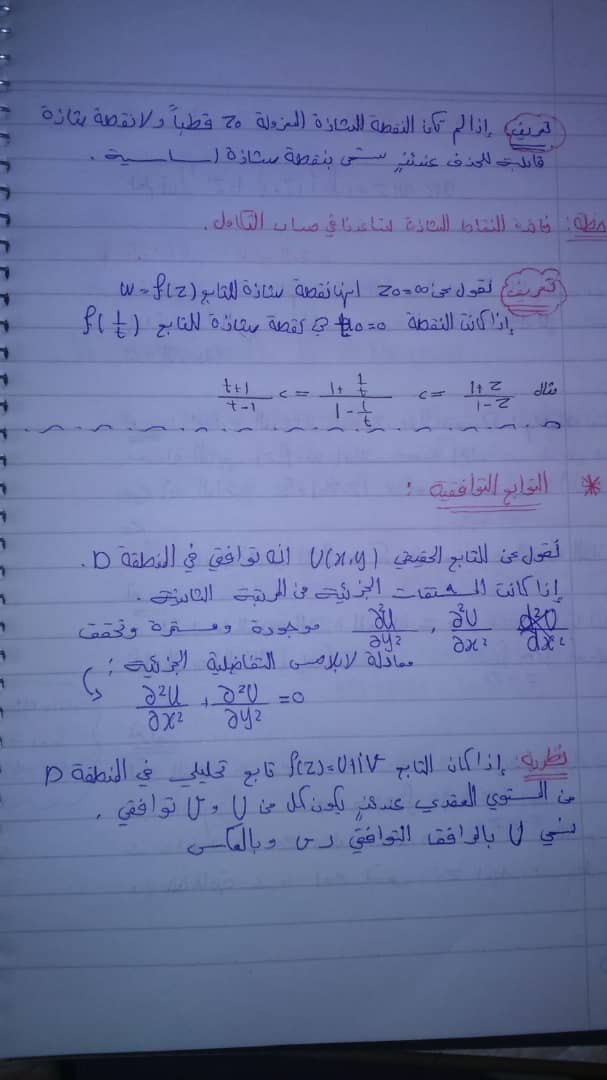 تعريف إذا لم تكن النقطة الشاذة المعزولة z₀ قطباً ولا نقطة شاذة
قابلة للحذف عندئذٍ ستسمى بنقطة شاذة أساسية .
ملاحظة : النقاط الشاذة تساعدنا في حساب التكامل .
تعريف نقول عن z₀=∞ انها نقطة شاذة للتابع w=f(z)
إذا كانت النقطة t₀=0 نقطة شاذة للتابع f(1/t)
مثال (z+1)/(z-1) => (1/t+1)/(1/t-1) => (t+1)/(t-1)
* التوابع التوافقية :
نقول عن التابع الحقيقي U(x,y) انه توافقي في المنطقة D .
إذا كانت المشتقات الجزئية من المرتبة الثانية .
∂²U/∂x² , ∂²U/∂y² موجودة ومستمرة وتحقق
معادلة لابلاس التفاضلية الجزئية :
∂²U/∂x² + ∂²U/∂y² =0
نظرية : إذا كان التابع f(z)=U+iV تابع تحليلي في المنطقة D
من المستوي العقدي عندئذٍ يكون كل من U و V توافقي .
نسمي U بالمرافق التوافقي وبالعكس